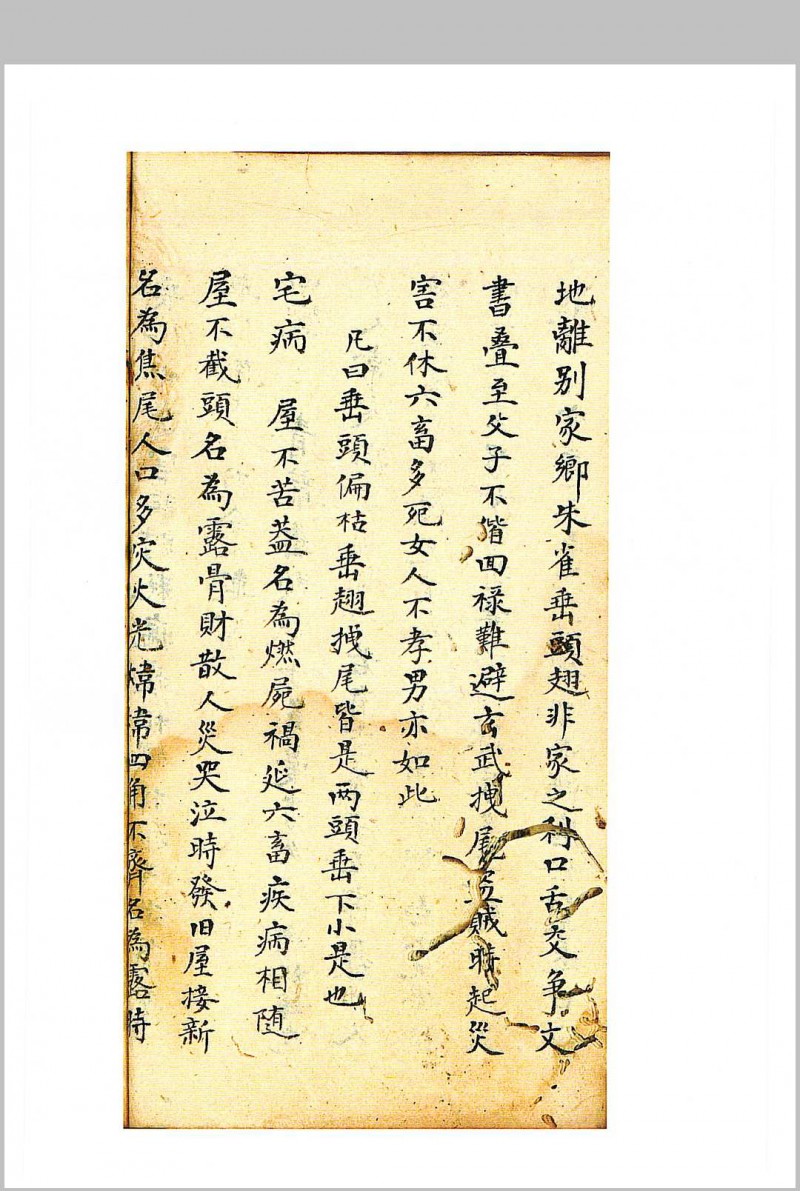 地離别家鄉朱雀垂頭翅非家之利口舌交争文
書疊至父子不偕回禄難避玄武拽尾盗賊時起災
害不休六畜多死女人不孝男亦如此
凡曰垂頭偏枯垂翅拽尾皆是两頭垂下小是也
宅病　屋不苫蓋名為燃屍禍延六畜疾病相随
屋不截頭名為露骨財散人災哭泣時發旧屋接新
名為焦尾人口多灾火光煒煒四角不齊名為露時